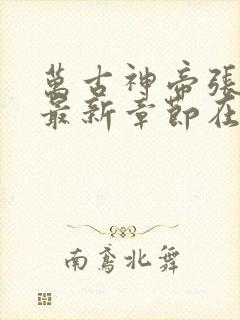 萬古神帝張
最新章節在
南鳶北舞